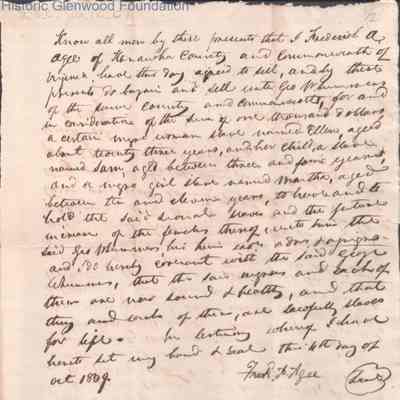 Historic Glenwood Foundation
Know all men by these presents that I Frederick A
Agee of Kanawha County and Commonwealth of
Virginia, have this day agreed to sell, and by these
presents do bargain and sell unto Geo W Summers
of the same County and Commonwealth, for and
in consideration of the sum of one thousand dollars
a certain negro woman slave named Ellen, aged
about twenty three years, and her child, a slave
named Sam, aged between three and four years,
and a negro girl slave named Martha, aged
between ten and eleven years, to have and to
hold the said several slaves and the future
increase of the females thereof unto him the
said Geo W Summers, his heirs and assigns
and I do hereby covenant with the said Geo W
Summers, that the said negroes and each of
them are now sound & healthy, and that
they and each of them, are lawfully slaves
for life. In testimony whereof I have
hereto set my hand & seal this 4th day of
Oct
Fredk A Agee